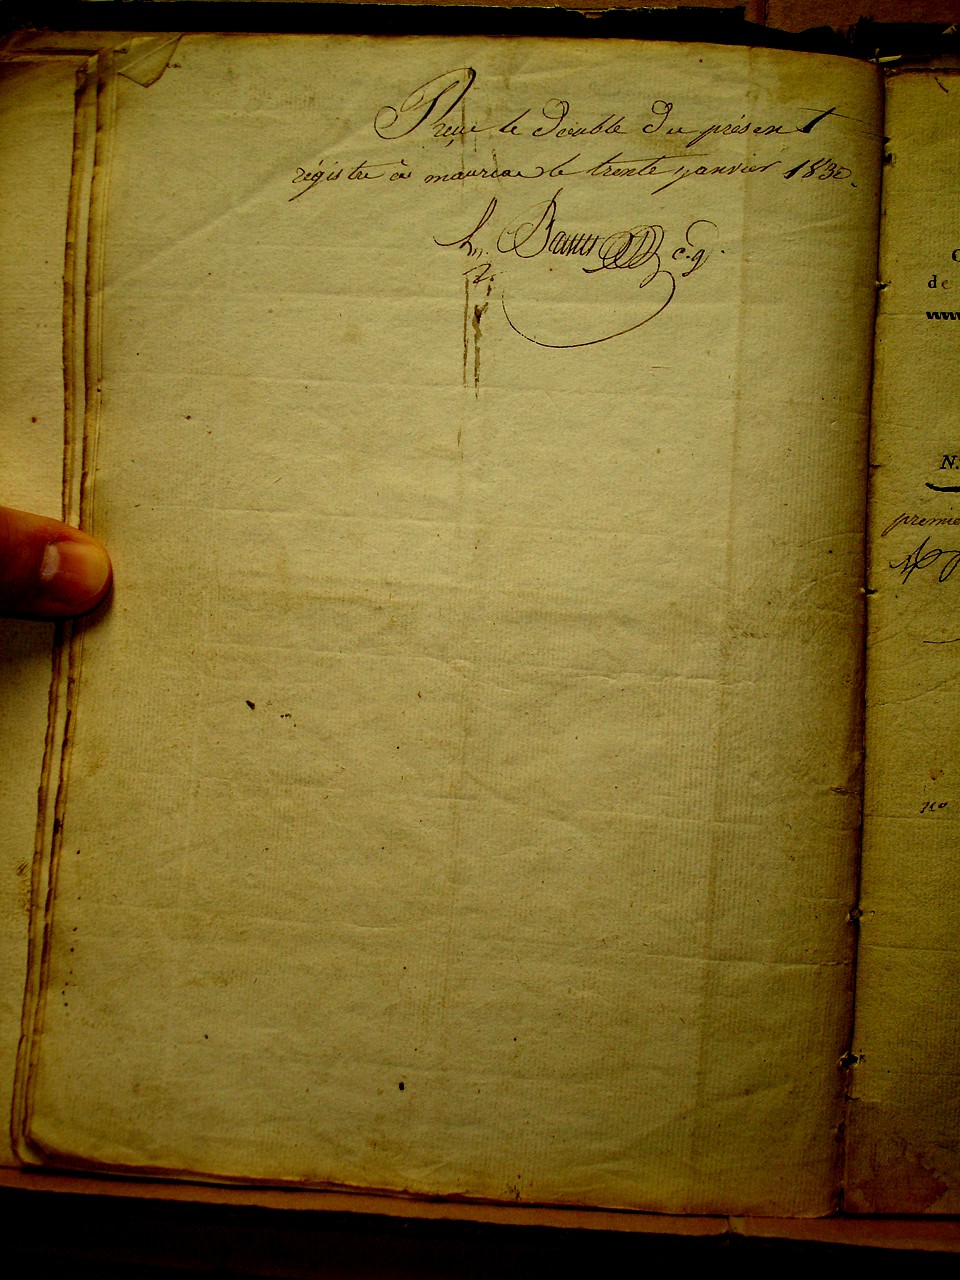 Reçu le double du présent
régistre à mauriac le trente janvier 1830.
c.g.
de
N.
premie